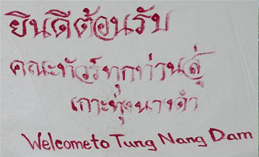 ยินดีต้อนรับ
คณะทัวร์ทุกท่านสู่
เกาะทุ่งนางดำ
Welcome to Tung Nang Dam